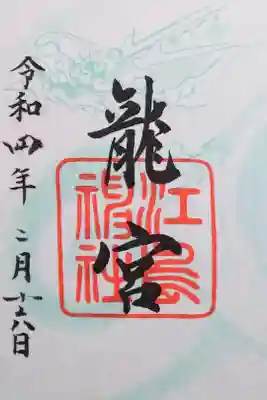 龍宮
江島神社
令和四年二月十六日